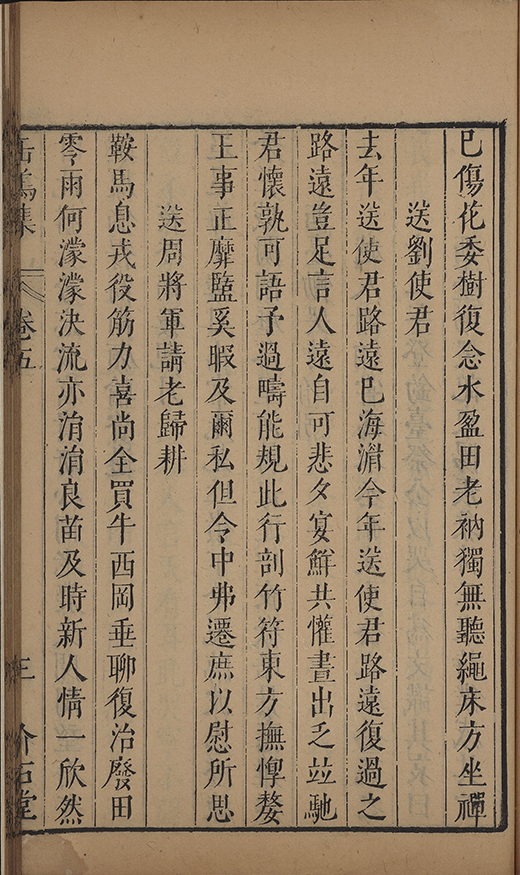 已傷花委樹復念水盈田老衲獨無聽繩床方坐禪
送劉使君
去年送使君路遠巳海湄今年送使君路遠復過之
路遠豈足言人遠自可悲夕宴鮮共懽晝出乏並馳
君懷孰可語予過疇能規此行剖竹符東方撫惸嫠
王事正靡盬奚暇及爾私但令中弗遷庶以慰所思
送周將軍請老歸耕
鞍馬息戎役筋力喜尚全買牛西岡垂聊復治廢田
零雨何濛濛決流亦涓涓良苗及時新人情一欣然
集 卷五 三 介石堂